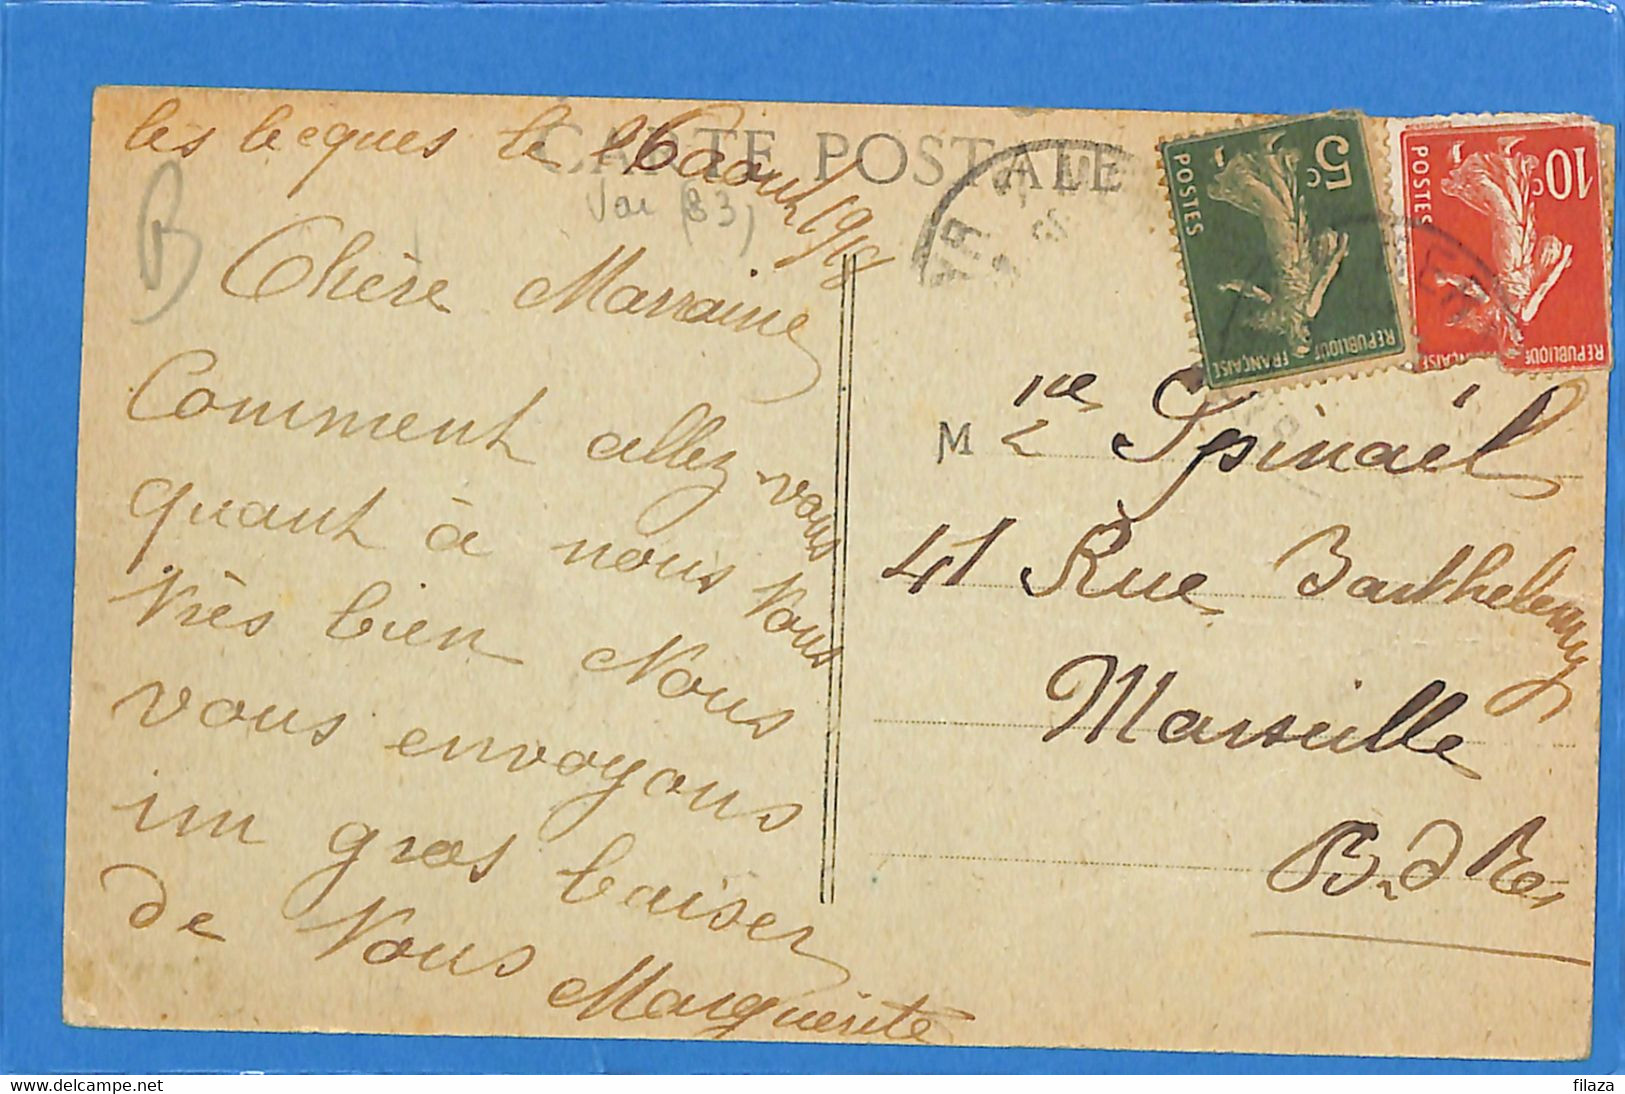 CARTE POSTALE
les lecques le 16 aout 1918
Var (83)
B
Chère Marraine
Comment allez vous
quant à nous tous
très bien Nous
vous envoyons
un gros baiser
de tous Marguerite
5c
POSTES
REPUBLIQUE FRANÇAISE
10c
POSTES
REPUBLIQUE FRANÇAISE
Spinaël
41 Rue Barthelemy
Marseille
B. d R
delcampe.net
filaza